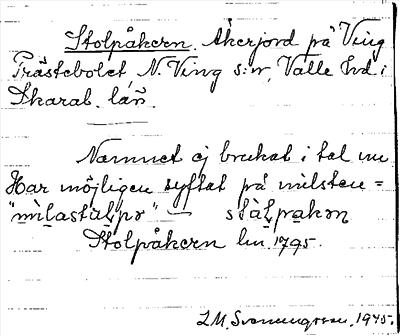 Stolpåkern. Åkerjord på Ving
Prästebolet N. Ving s:n, Valle hd i
Skarab. län.
Namnet ej brukat i tal nu
Har möjligen syftat på milsten =
"mìlastàlpə" — stàlpakən
Stolpåkern lm. 1795.
L.M. Svenungsson, 1945.